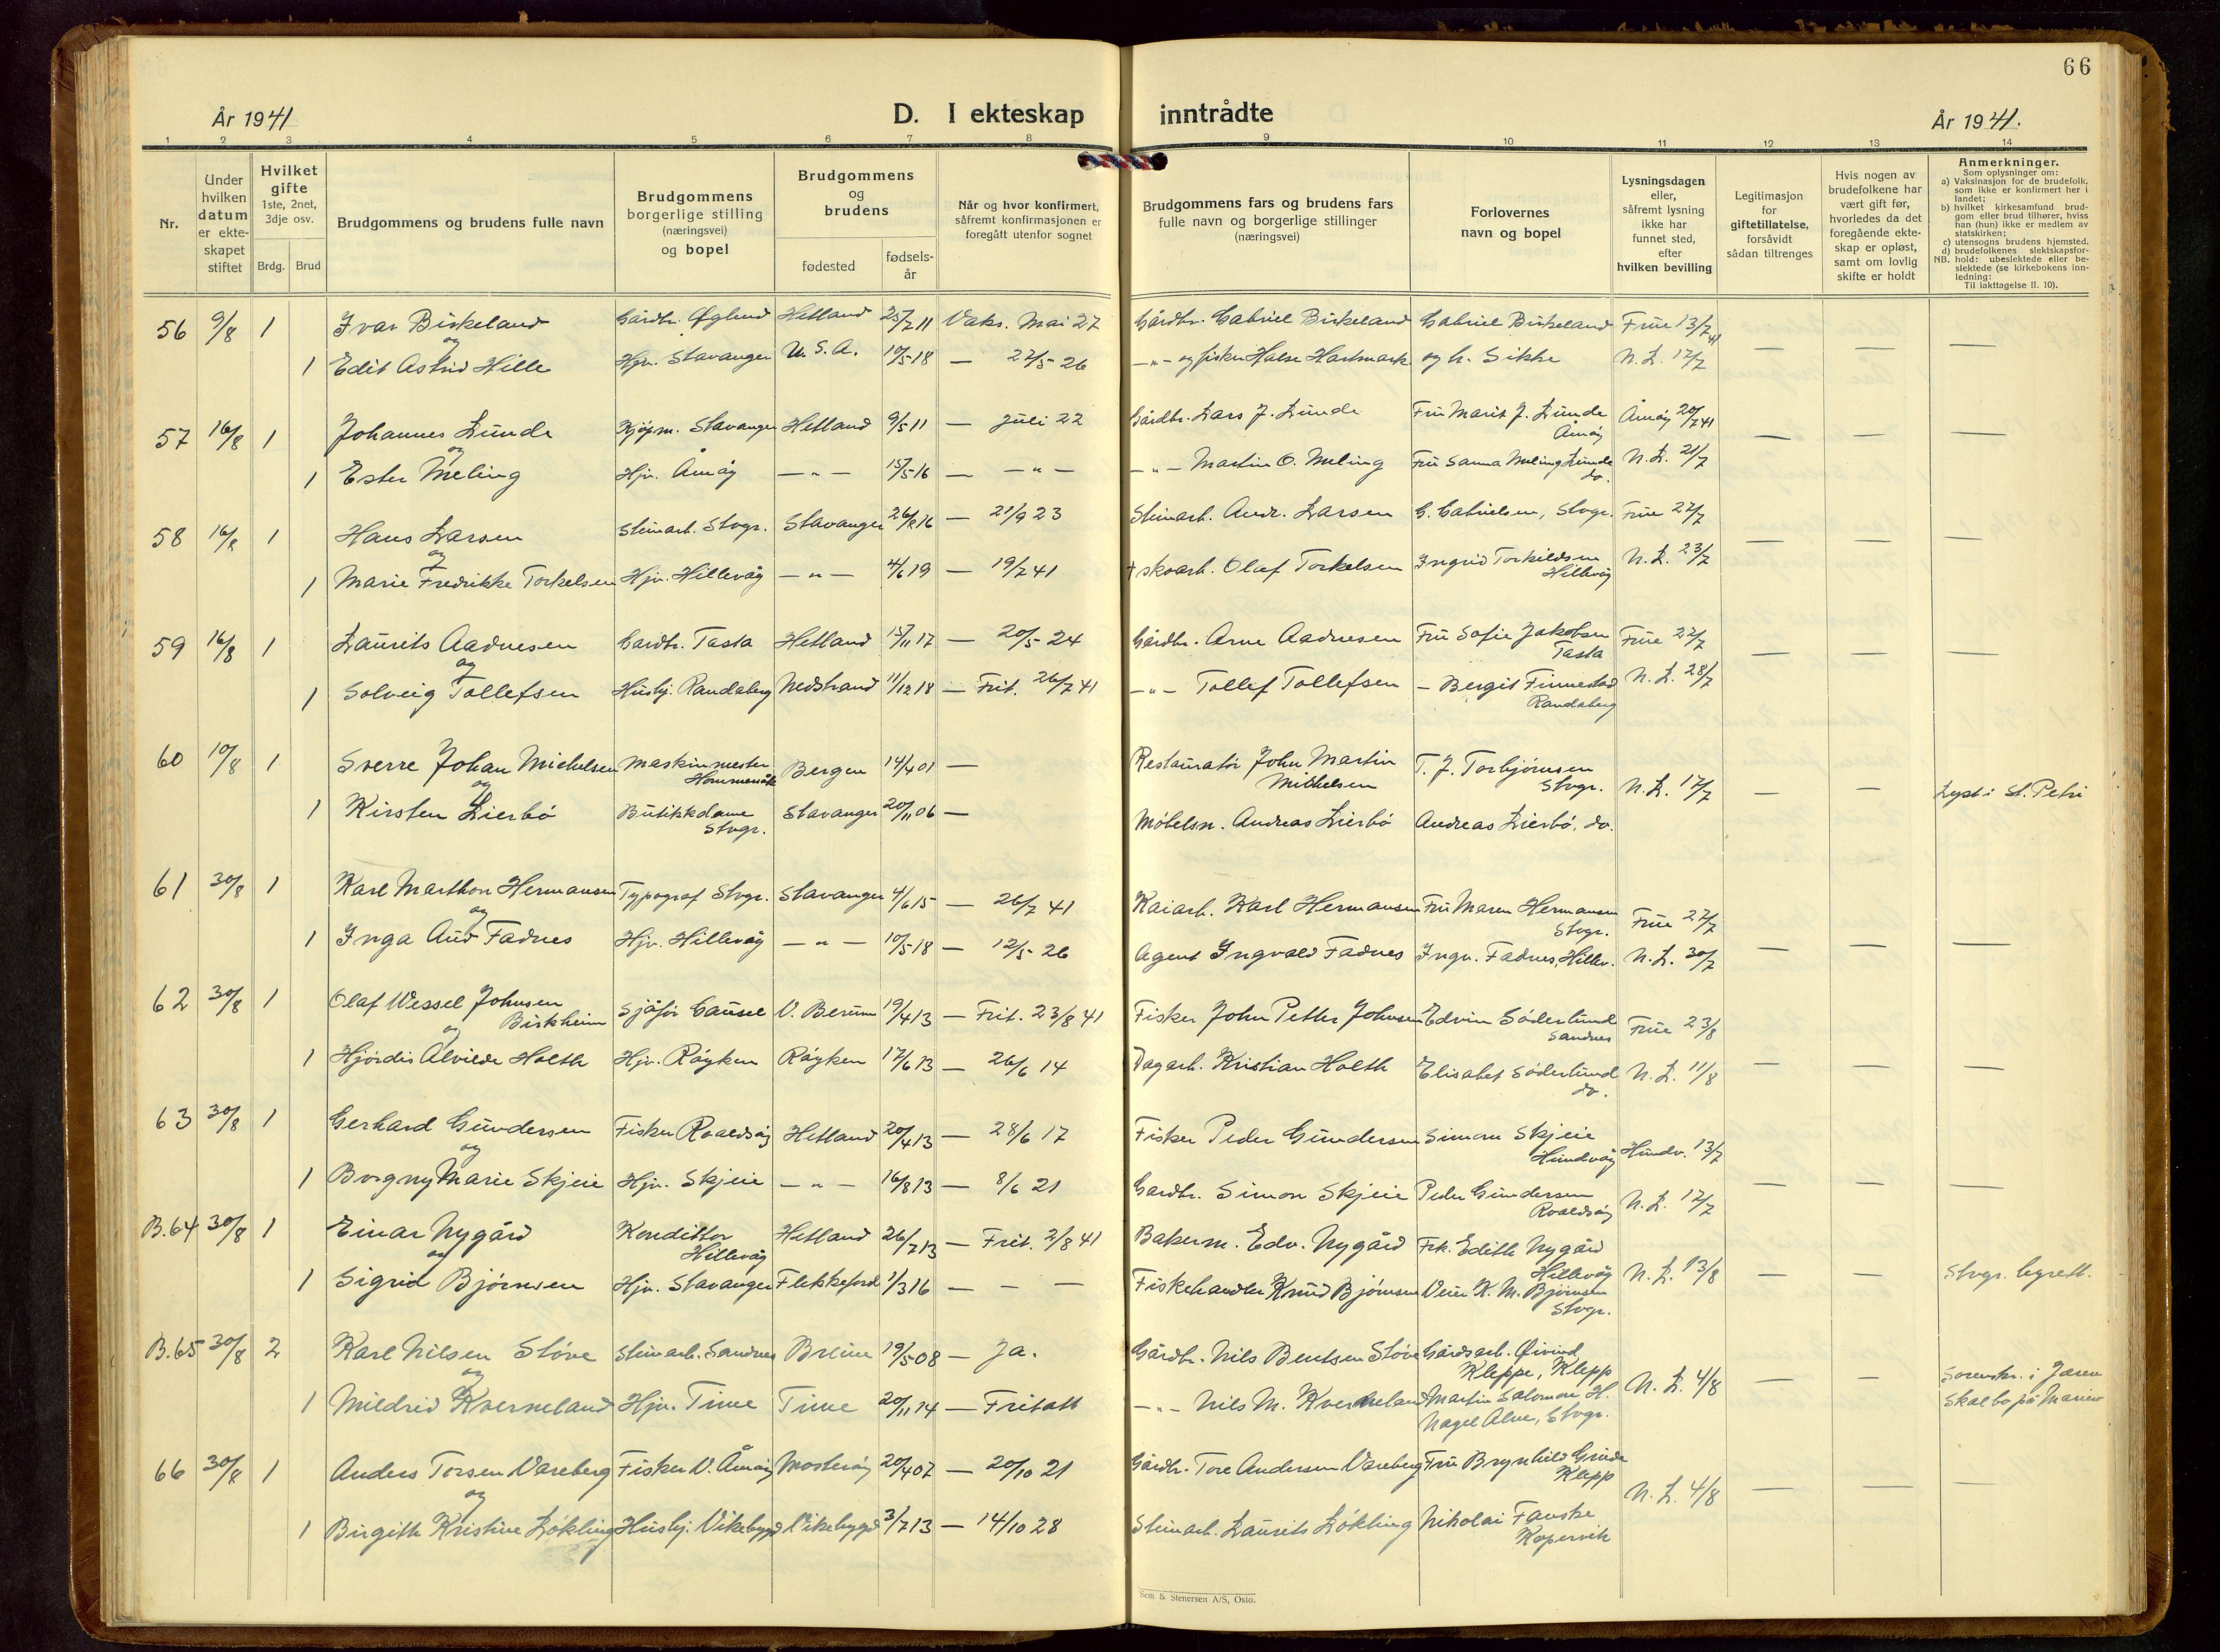 66
År 1941
D. I ekteskap inntrådte
År 1941.
1 2 3 4 5 6 7 8 9 10 11 12 13 14
Nr.
Under hvilken datum er ekteskapet stiftet
Hvilket gifte 1ste, 2net, 3dje osv.
Brdg. Brud
Brudgommens og brudens fulle navn
Brudgommens borgerlige stilling (næringsvei) og bopel
Brudgommens og brudens
fødested
fødsels-år
Når og hvor konfirmert, såfremt konfirmasjonen er foregått utenfor sognet
Brudgommens fars og brudens fars fulle navn og borgerlige stillinger (næringsvei)
Forlovernes navn og bopel
Lysningsdagen eller, såfremt lysning ikke har funnet sted, efter hvilken bevilling
Legitimasjon for giftetillatelse, forsåvidt sådan tiltrenges
Hvis nogen av brudefolkene har vært gift før, hvorledes da det foregående ekteskap er opløst, samt om lovlig skifte er holdt
Anmerkninger.
Som oplysninger om:
a) Vaksinasjon for de brudefolk, som ikke er konfirmert her i landet;
b) hvilket kirkesamfund brudgom eller brud tilhører, hviss han (hun) ikke er medlem av statskirken;
c) utensogns brudens hjemsted.
d) brudefolkenes slektskapsforhold: ubeslektede eller beslektede (se kirkebokens innledning:
NB. Til iakttagelse II. 10).
56 9/8 1 Ivar Birkeland Gårdbr. Øglend Hetland 25/7 11 Vaks. Mai 27 Gårdbr. Gabriel Birkeland Gabriel Birkeland Frue 13/7 41
og
1 Edit Astrid Hille Hjv. Stavanger U.S.A. 10/5 18 — 22/5 26 —"— og fisker Halse Hartmark og h. Sikke N.L. 12/7 — — —
57 16/8 1 Johannes Lunde Kjøpm. Stavanger Hetland 9/5 11 — Juli 22 Gårdbr. Lars J. Lunde Fru Marit J. Lunde Åmøy Åmøy 20/7 41
og
1 Ester Meling Hjv. Åmøy —"— 15/5 16 — —"— —"— Martin O. Meling Fru Sanna Meling Lunde do. N.L. 21/7 — — —
58 16/8 1 Hans Larsen Steinarb. Stvgr. Stavanger 26/8 16 — 21/9 23 Steinarb. Andr. Larsen G. Gabrielsen, Stvgr. Frue 27/7
og
1 Marie Fredrikke Torkelsen Hjv. Hillevåg —"— 4/6 19 — 19/7 41 † skoarb. Olaf Torkelsen Ingrid Torkildsen Hillevåg N.L. 23/7 — — —
59 16/8 1 Laurits Aadnesen Gardbr. Tasta Hetland 15/11 17 — 20/5 24 Gårdbr. Arne Aadnesen Fru Sofie Jakobsen Tasta Frue 27/7
og
1 Solveig Tollefsen Husbj. Randaberg Nedstrand 11/12 18 — Frit. 26/7 41 —"— Tollef Tollefsen — Bergit Finnestad Randaberg N.L. 28/7 — — —
60 10/8 1 Sverre Johan Michelsen Maskinmester Hommersåk Bergen 14/4 01 — Restauratør John Martin Michelsen T. J. Torbjørnsen Stvgr. N.L. 17/7 — — Lyst i St. Petri
og
1 Kirsten Lierbø Butikkdame Stvgr. Stavanger 20/11 06 — Møbelsn. Andreas Lierbø Andreas Lierbø, do.
61 30/8 1 Karl Marthon Hermansen Typograf Stvgr. Stavanger 4/6 15 — 26/7 41 Kaiarb. Karl Hermansen Fru Maren Hermansen Stvgr. Frue 27/7
og
1 Inga Aud Fadnes Hjv. Hillevåg —"— 10/5 18 — 12/5 26 Agent Ingvald Fadnes Ingv. Fadnes, Hillev. N.L. 30/7 — — —
62 30/8 1 Olaf Wessel Johnsen Birkheim Sjåfør Gausel V. Berum 19/4 13 — Frit. 23/8 41 Fisker John Petter Johnsen Edvin Söderlund Sandnes Frue 23/8
og
1 Hjørdis Alvilde Holth Hjv. Røyken Røyken 17/6 13 — 26/6 14 Dagarb. Kristian Holth Elisabet Söderlund do. N.L. 11/8 — — —
63 30/8 1 Gerhard Gundersen Fisker Roaldsøy Hetland 20/4 13 — 28/6 17 Fisker Peder Gundersen Simon Skjeie Hundvåg Hundv. 13/7
og
1 Borgny Marie Skjeie Hjv. Skjeie —"— 16/8 13 — 8/6 21 Gardbr. Simon Skjeie Peder Gundersen Roaldsøy N.L. 12/7 — — —
B.64 30/8 1 Einar Nygård Konditor Hillevåg Hetland 26/7 13 — Frit. 2/8 41 Bakerm. Edv. Nygård Frk. Edith Nygård Hillevåg N.L. 13/8 — — Stvgr. byrett.
og
1 Sigrid Bjørnsen Hjv. Stavanger Flekkefjord 1/3 16 — — — Fiskehandler Knud Bjørnsen Veier K. M. Bjørnsen Stvgr.
B.65 30/8 2 Karl Nilsen Støve Steinarb. Sandnes Breime 19/5 08 — Ja. Gårdbr. Nils Bentsen Støve Gårdsarb. Øivind Kleppe, Klepp N.L. 4/8 — — Sorenskr. i Jæren
og
1 Mildrid Kverneland Hjv. Time Time 20/11 14 — Fritatt —"— Nils M. Kverneland Martin Salomon H. Nagel Alne, Stvgr. Skal bo på Mariero
66 30/8 1 Anders Torsen Vareberg Fisker V. Åmøy Mosterøy 20/4 07 — 20/10 21 Gårdbr. Tore Andersen Vareberg Fru Brynhild Grude Klepp N.L. 4/8 — — —
og
1 Birgith Kristine Løkling Husbj. Vikebygd Vikebygd 3/7 13 — 14/10 28 Steinarb. Laurits Løkling Nikolai Fauske Kopervik
Sem & Stenersen A/S, Oslo.